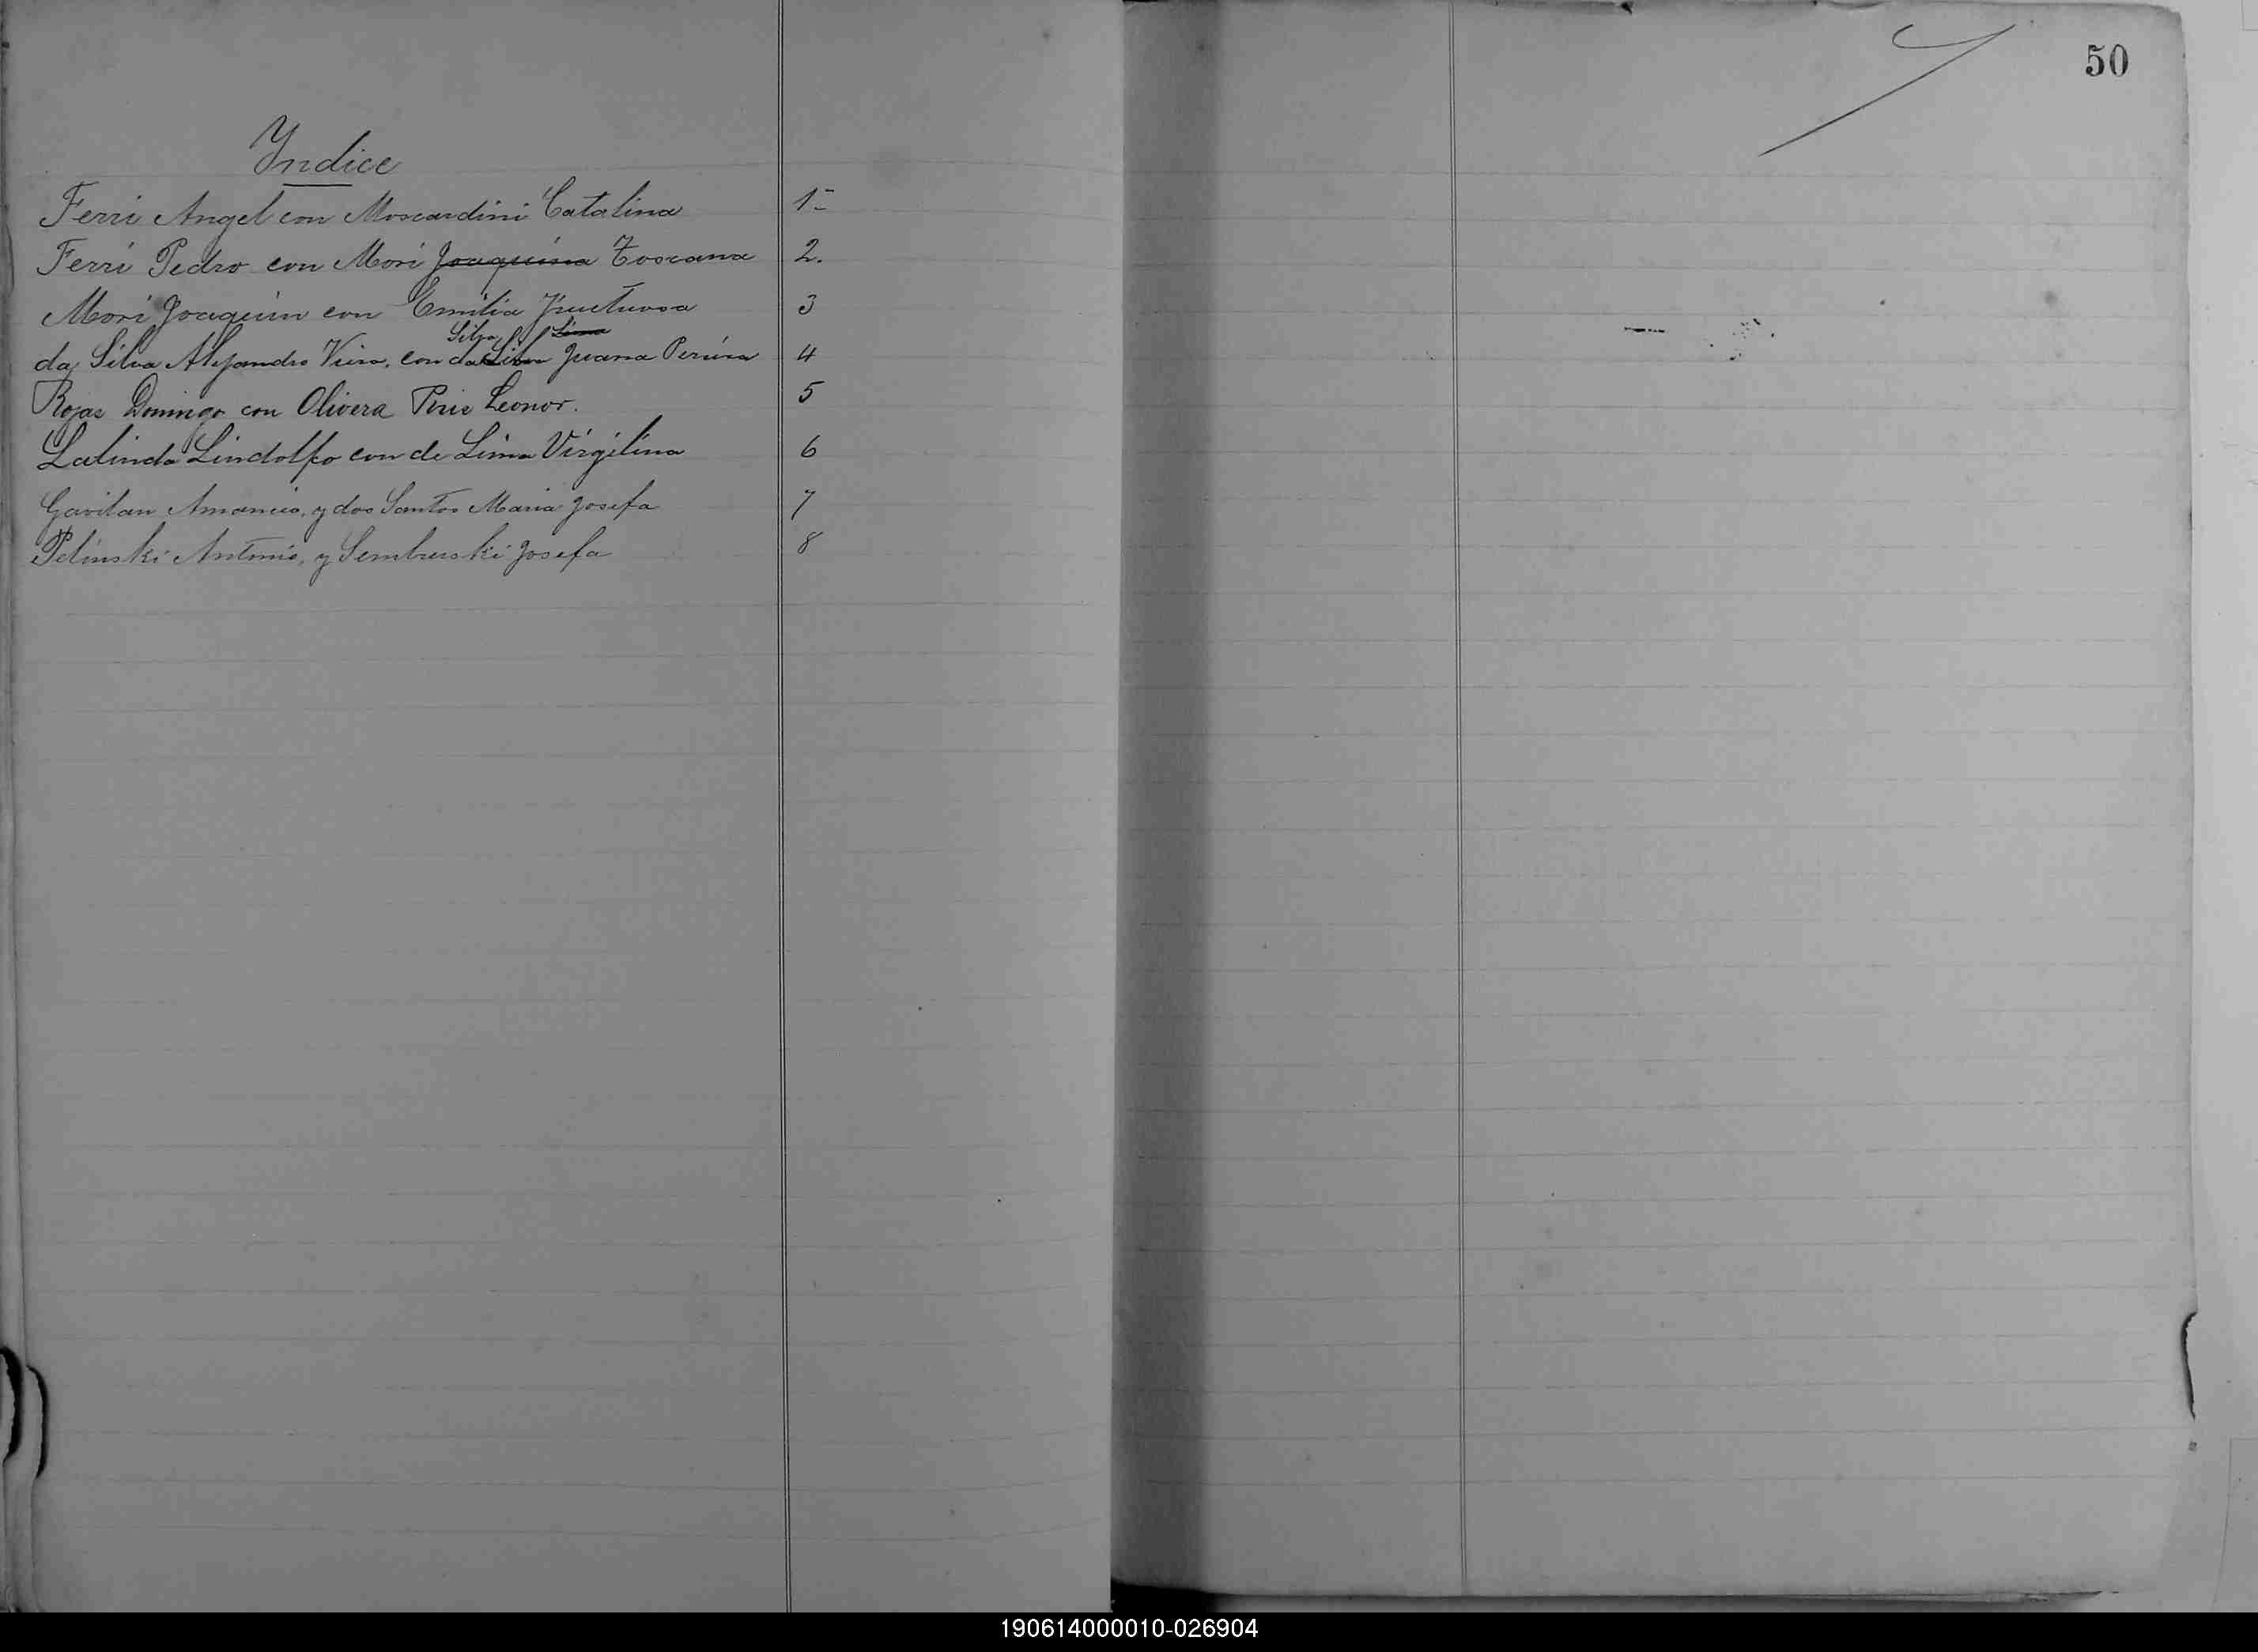 50
Yndice
Ferri Angel con Moscardini Catalina 1-
Ferri Pedro con Mori Joaquina Toscana 2.
Mori Joaquin con Emilia Fructuosa 3
Silva Lima
da Silva Alejandro Viera, con da Juana Pereira 4
Rojas Domingo con Olivera Piris Leonor. 5
Lalinda Lindolfo con de Lima Virgilina 6
Gavilan Amancio, y dos Santos Maria Josefa 7
Pelinski Antonio, y Sembruski Josefa 8
190614000010-026904